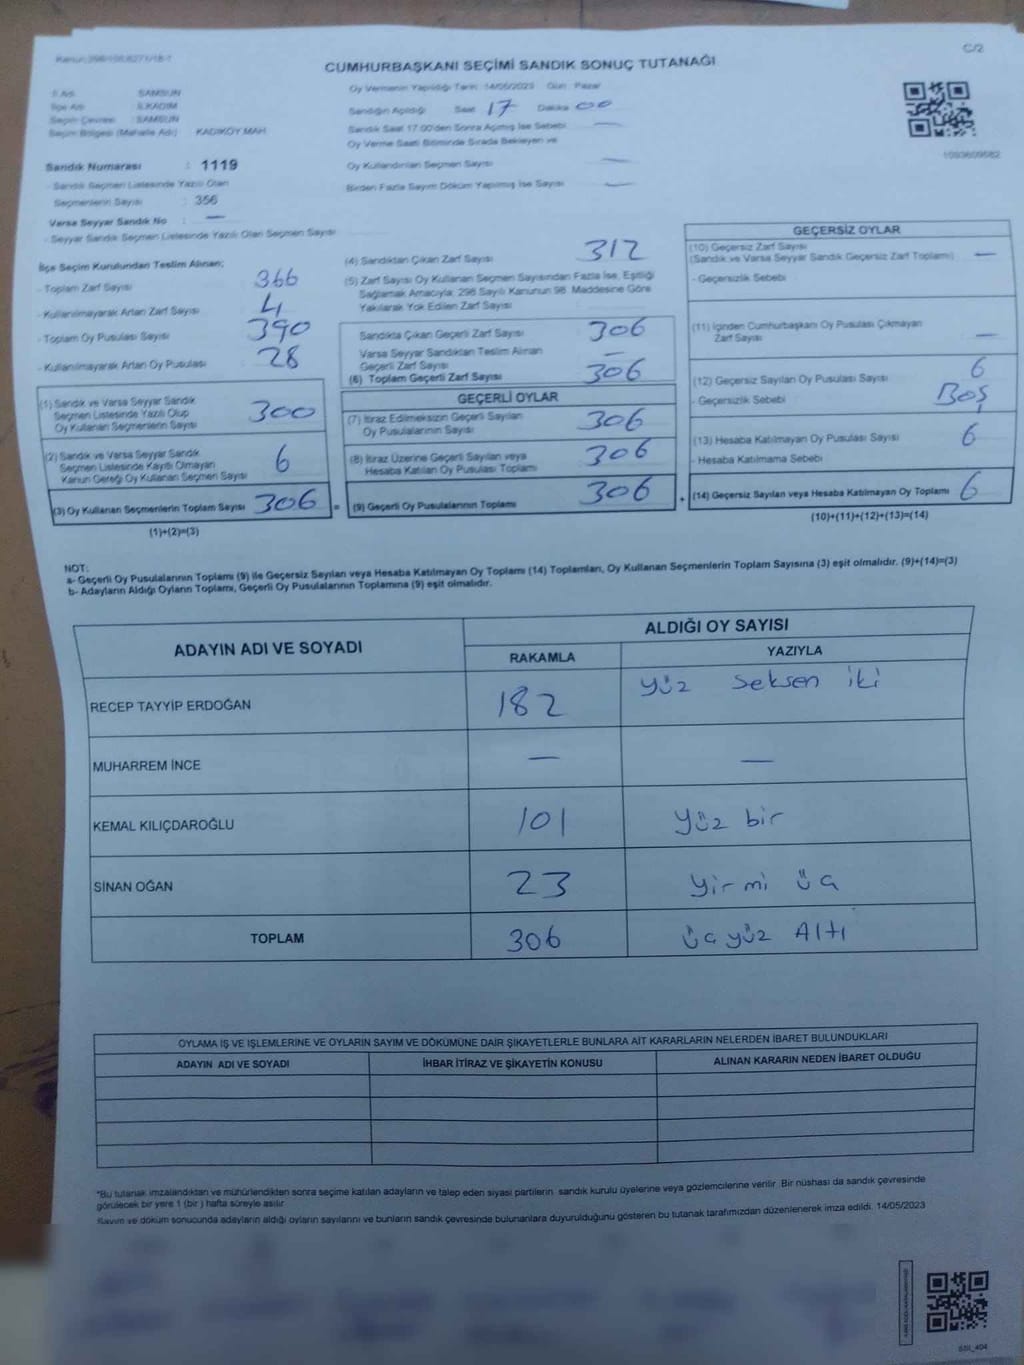 C/2
CUMHURBAŞKANI SEÇİMİ SANDIK SONUÇ TUTANAĞI
İl Adı : SAMSUN
İlçe Adı : İLKADIM
Seçim Çevresi : SAMSUN
Seçim Bölgesi (Mahalle Adı) : KADIKÖY MAH.
Sandık Numarası : 1119
- Sandık Seçmen Listesinde Yazılı Olan
Seçmenlerin Sayısı : 356
Varsa Seyyar Sandık No : —
- Seyyar Sandık Seçmen Listesinde Yazılı Olan Seçmen Sayısı
Oy Vermenin Yapıldığı Tarih: 14/05/2023 Gün : Pazar
Sandığın Açıldığı Saat 17 Dakika 00
Sandık Saat 17.00'den Sonra Açılmış İse Sebebi —
Oy Verme Saati Bitiminde Sırada Bekleyen ve
Oy Kullandırılan Seçmen Sayısı —
Birden Fazla Sayım Döküm Yapılmış İse Sayısı —
1093609582
İlçe Seçim Kurulundan Teslim Alınan;
- Toplam Zarf Sayısı 366
- Kullanılmayarak Artan Zarf Sayısı 4
- Toplam Oy Pusulası Sayısı 390
- Kullanılmayarak Artan Oy Pusulası 28
(1) Sandık ve Varsa Seyyar Sandık
Seçmen Listesinde Yazılı Olup
Oy Kullanan Seçmenlerin Sayısı 300
(2) Sandık ve Varsa Seyyar Sandık
Seçmen Listesinde Kayıtlı Olmayan
Kanun Gereği Oy Kullanan Seçmen Sayısı 6
(3) Oy Kullanan Seçmenlerin Toplam Sayısı 306
(1)+(2)=(3)
(4) Sandıktan Çıkan Zarf Sayısı 312
(5) Zarf Sayısı Oy Kullanan Seçmen Sayısından Fazla İse, Eşitliği
Sağlamak Amacıyla; 298 Sayılı Kanunun 98. Maddesine Göre
Yakılarak Yok Edilen Zarf Sayısı
Sandıkta Çıkan Geçerli Zarf Sayısı 306
Varsa Seyyar Sandıktan Teslim Alınan
Geçerli Zarf Sayısı —
(6) Toplam Geçerli Zarf Sayısı 306
GEÇERLİ OYLAR
(7) İtiraz Edilmeksizin Geçerli Sayılan
Oy Pusulalarının Sayısı 306
(8) İtiraz Üzerine Geçerli Sayılan veya
Hesaba Katılan Oy Pusulası Toplamı 306
= (9) Geçerli Oy Pusulalarının Toplamı 306
GEÇERSİZ OYLAR
(10) Geçersiz Zarf Sayısı
(Sandık ve Varsa Seyyar Sandık Geçersiz Zarf Toplamı) —
- Geçersizlik Sebebi
(11) İçinden Cumhurbaşkanı Oy Pusulası Çıkmayan
Zarf Sayısı —
(12) Geçersiz Sayılan Oy Pusulası Sayısı 6
- Geçersizlik Sebebi BOŞ
(13) Hesaba Katılmayan Oy Pusulası Sayısı 6
- Hesaba Katılmama Sebebi
+ (14) Geçersiz Sayılan veya Hesaba Katılmayan Oy Toplamı 6
(10)+(11)+(12)+(13)=(14)
NOT:
a- Geçerli Oy Pusulalarının Toplamı (9) ile Geçersiz Sayılan veya Hesaba Katılmayan Oy Toplamı (14) Toplamları, Oy Kullanan Seçmenlerin Toplam Sayısına (3) eşit olmalıdır. (9)+(14)=(3)
b- Adayların Aldığı Oyların Toplamı, Geçerli Oy Pusulalarının Toplamına (9) eşit olmalıdır.
ADAYIN ADI VE SOYADI
ALDIĞI OY SAYISI
RAKAMLA YAZIYLA
RECEP TAYYİP ERDOĞAN 182 yüz seksen iki
MUHARREM İNCE — —
KEMAL KILIÇDAROĞLU 101 yüz bir
SİNAN OĞAN 23 yirmi üç
TOPLAM 306 üç yüz Altı
OYLAMA İŞ VE İŞLEMLERİNE VE OYLARIN SAYIM VE DÖKÜMÜNE DAİR ŞİKAYETLERLE BUNLARA AİT KARARLARIN NELERDEN İBARET BULUNDUKLARI
ADAYIN ADI VE SOYADI İHBAR İTİRAZ VE ŞİKAYETİN KONUSU ALINAN KARARIN NEDEN İBARET OLDUĞU
*Bu tutanak imzalandıktan ve mühürlendikten sonra seçime katılan adayların ve talep eden siyasi partilerin sandık kurulu üyelerine veya gözlemcilerine verilir. Bir nüshası da sandık çevresinde
görülecek bir yere 1 (bir ) hafta süreyle asılır.
Sayım ve döküm sonucunda adayların aldığı oyların sayılarını ve bunların sandık çevresinde bulunanlara duyurulduğunu gösteren bu tutanak tarafımızdan düzenlenerek imza edildi. 14/05/2023